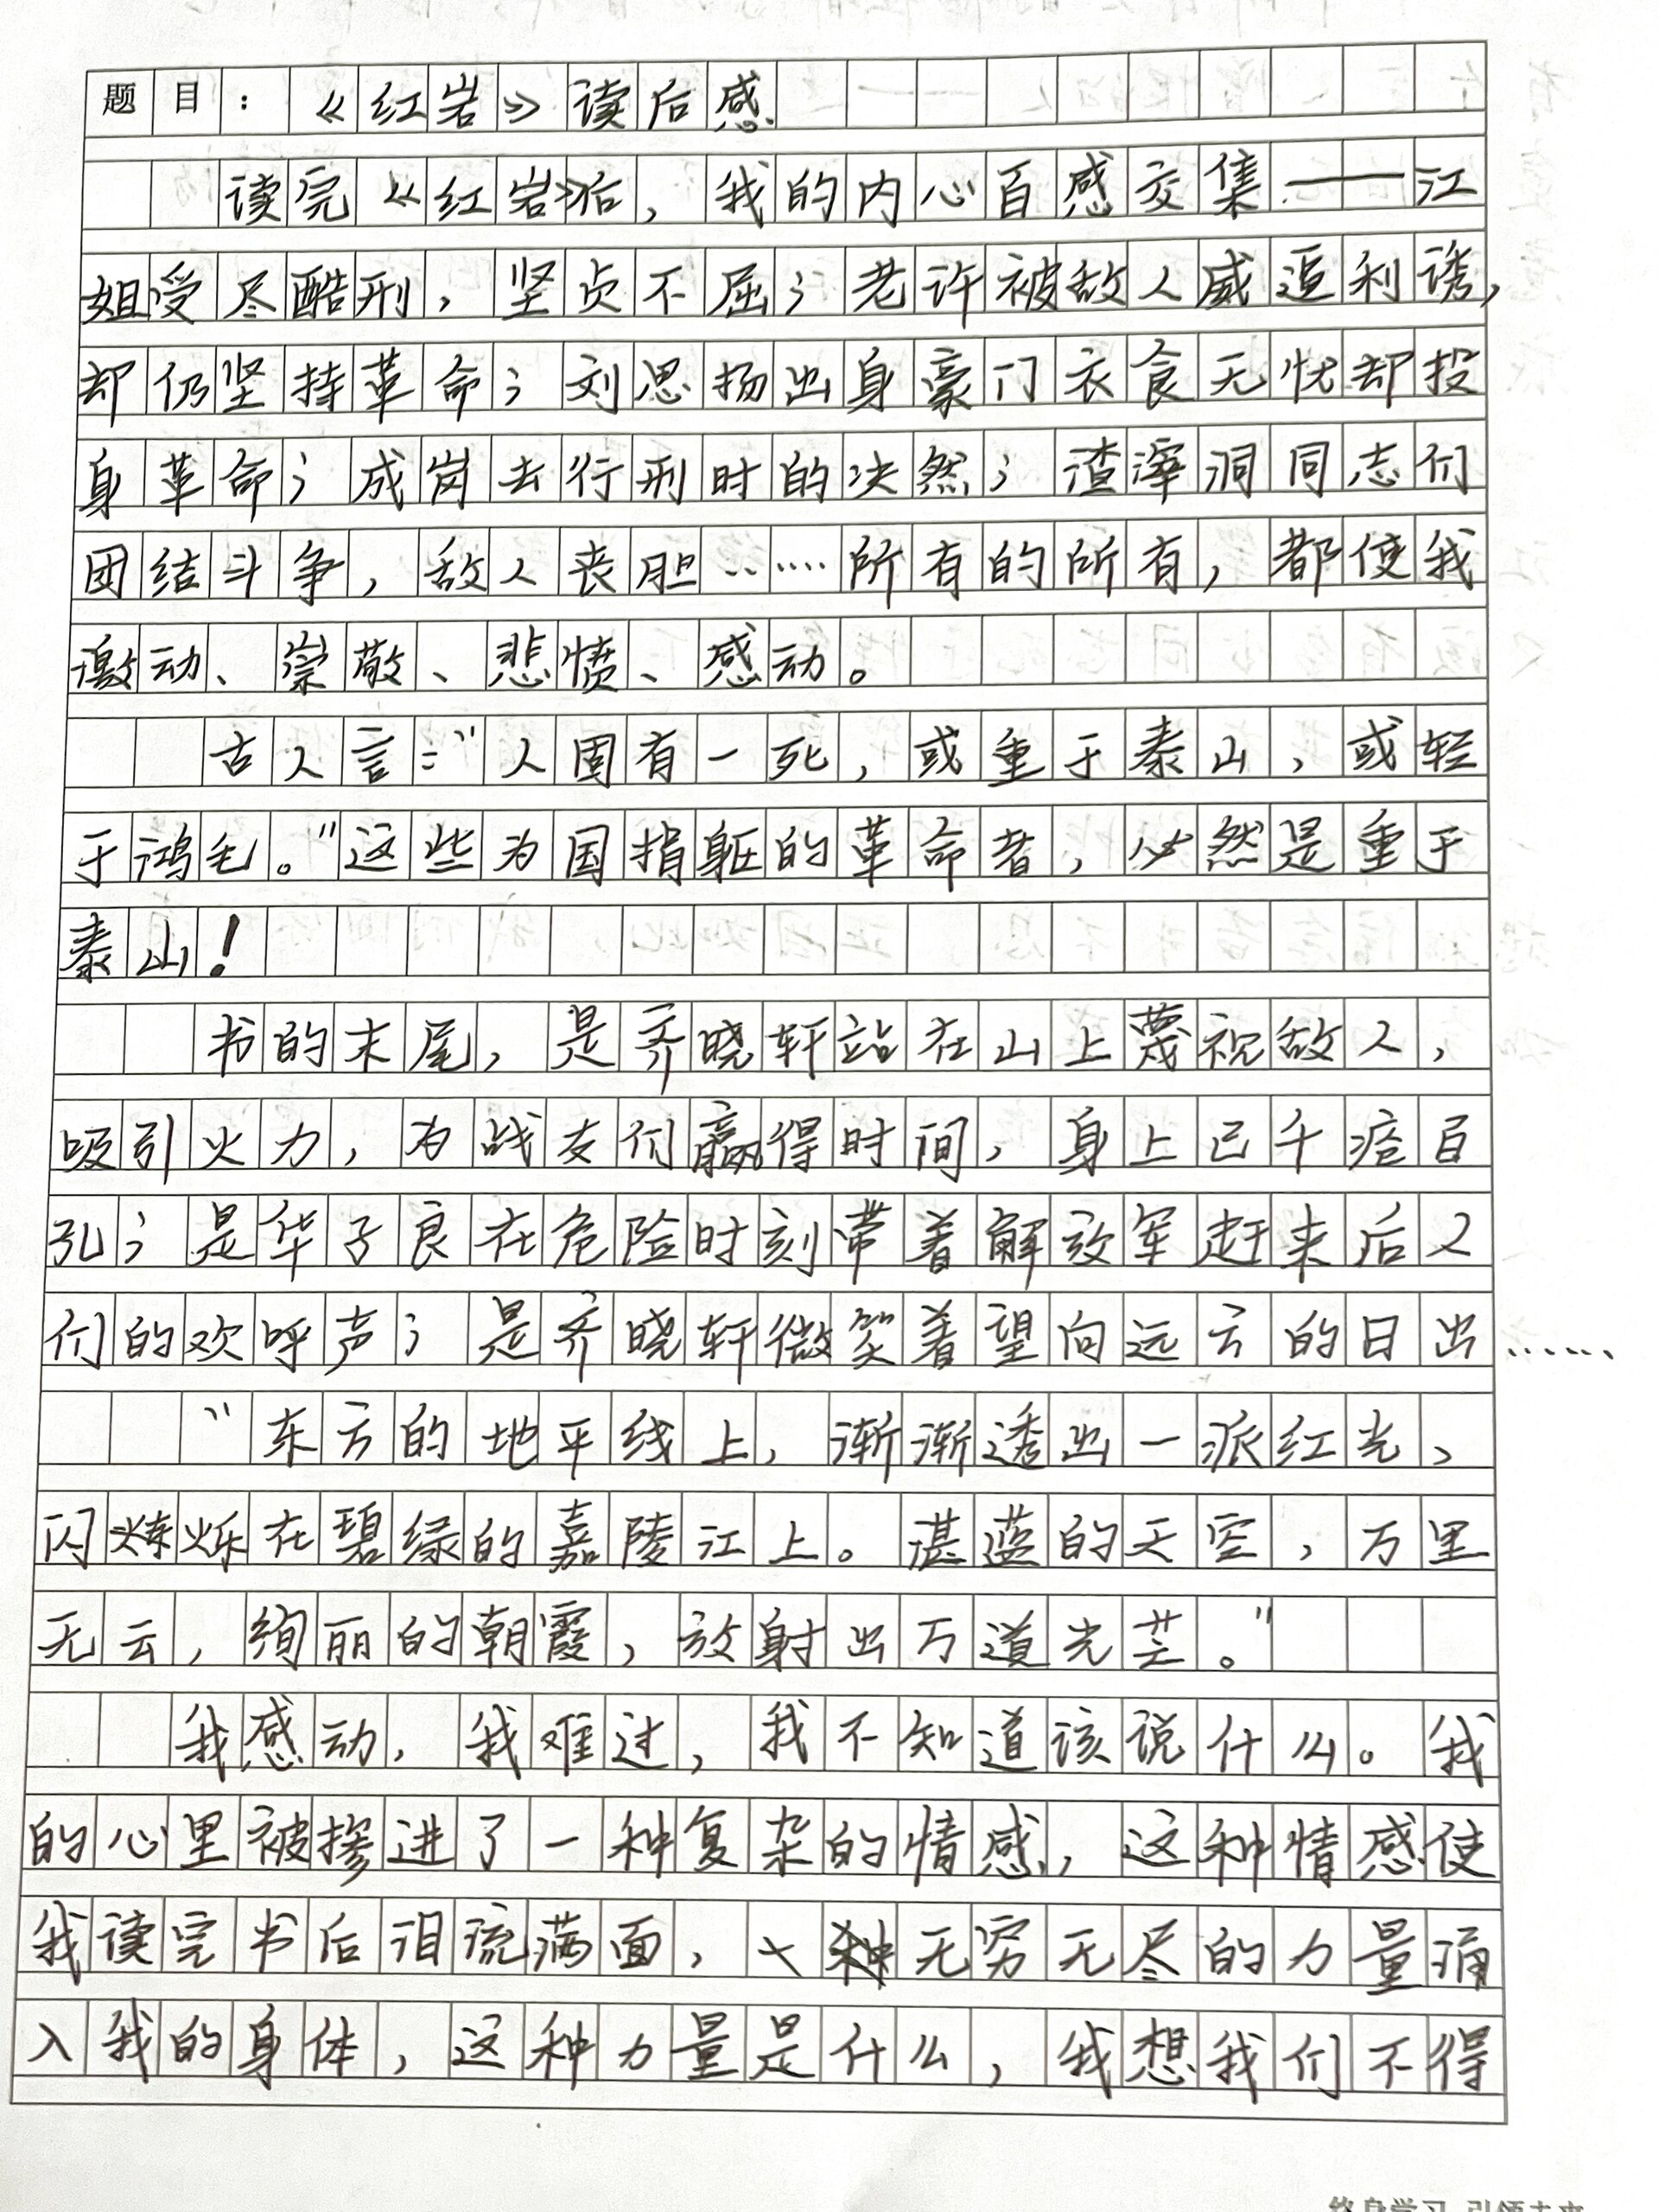 题目：《红岩》读后感
读完《红岩》后，我的内心百感交集——江
姐受尽酷刑，坚贞不屈；老许被敌人威逼利诱，
却仍坚持革命；刘思扬出身豪门衣食无忧却投
身革命；成岗去行刑时的决然；渣滓洞同志们
团结斗争，敌人丧胆……所有的所有，都使我
激动、崇敬、悲愤、感动。
古人言：“人固有一死，或重于泰山，或轻
于鸿毛。”这些为国捐躯的革命者，必然是重于
泰山！
书的末尾，是齐晓轩站在山上蔑视敌人，
吸引火力，为战友们赢得时间，身上已千疮百
孔；是华子良在危险时刻带着解放军赶来后人
们的欢呼声；是齐晓轩微笑着望向远方的日出……
“东方的地平线上，渐渐透出一派红光，
闪烁在碧绿的嘉陵江上。湛蓝的天空，万里
无云，绚丽的朝霞，放射出万道光芒。”
我感动，我难过，我不知道该说什么。我
的心里被掺进了一种复杂的情感，这种情感使
我读完书后泪流满面，无穷无尽的力量涌
入我的身体，这种力量是什么，我想我们不得
终身学习 引领未来